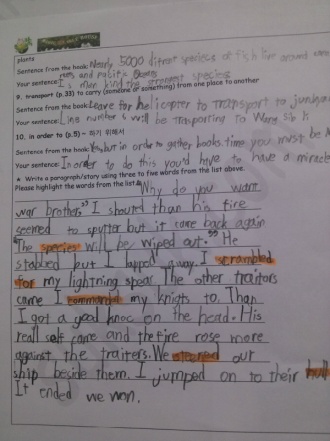 plants
Sentence from the book: Nearly 5000 difrent species of fish live around
Your sentence: is the strongest species
9. transport (p.33) to carry (someone or something) from one place to another
Sentence from the book: Leave for helicopter to transport to
Your sentence: Line number will be Trasporting to
10. in order to (p.5) - 하기 위해서
Sentence from the book: but in order to gather books time you must be
Your sentence: In order to do this you'd have to have a miracle
★ Write a paragraph/story using three to five words from the list above.
Please highlight the words from the list.
"Why do you want
war brother." I shouted than his fire
seemed to sputter but it came back again
"The species will be wiped out." He
stabbed but I away. I scrambled
for my lightning spear. The other traitors
came I command my knigts to. Than
I got a good knoc on the head. His
reall self came and the fire rose more
against the traiters. We steered our
ship beside them. I jumped on to their hull
It ended we won.